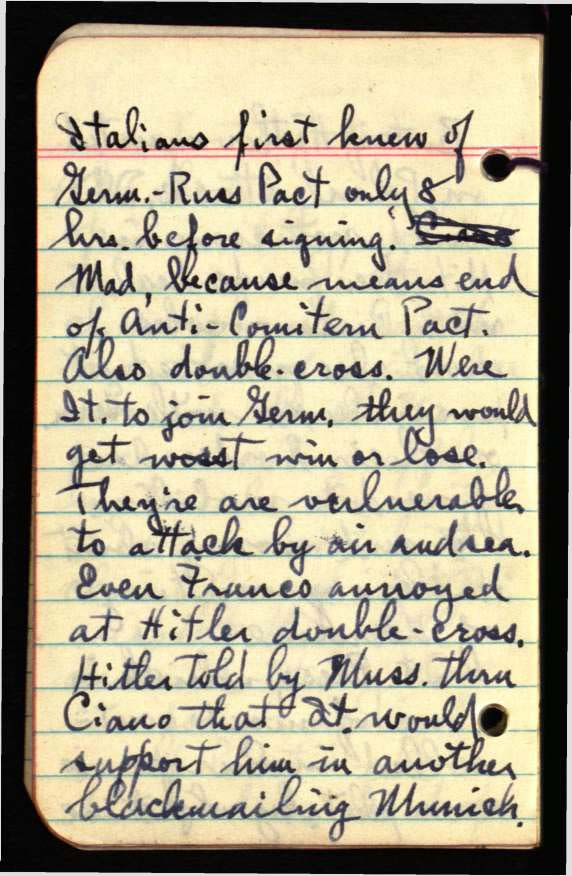 Italians first knew of
Germ.-Russ Pact only 8
hrs. before signing.
Mad, because means end
of Anti-Comitern Pact.
Also double-cross. Were
It. to join Germ, they would
get worst win or lose.
They're are vulnerable
to attack by air and sea.
Even Franco annoyed
at Hitler double-cross.
Hitler told by Muss. thru
Ciano that It. would
support him in another
blackmailing Munich.